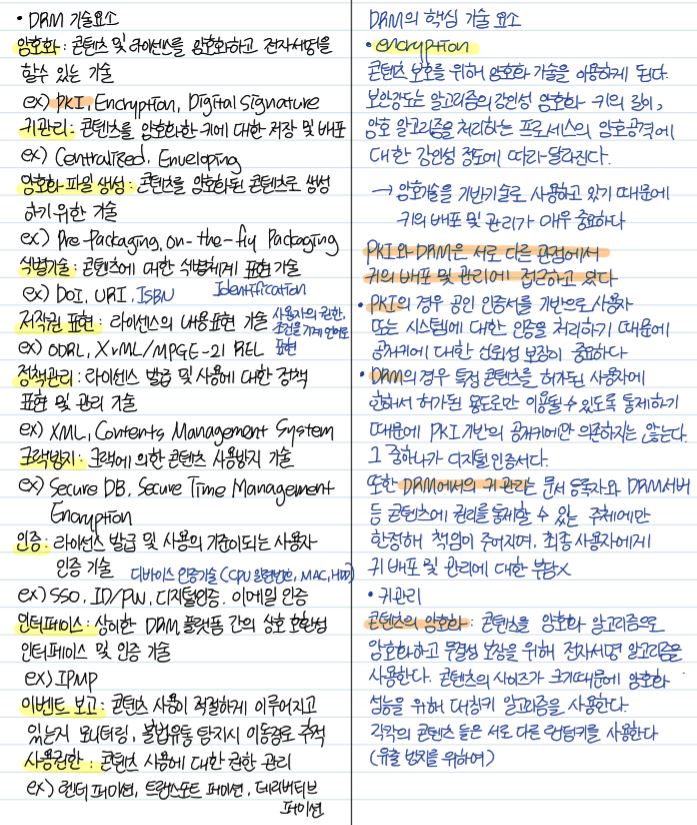 • DRM 기술요소
암호화 : 콘텐츠 및 라이센스를 암호화하고 전자서명을
할 수 있는 기술
ex) PKI, Encryption, Digital Signature
키관리 : 콘텐츠를 암호화한 키에 대한 저장 및 배포
ex) Centralized, Enveloping
암호화 파일 생성 : 콘텐츠를 암호화된 콘텐츠로 생성
하기 위한 기술
ex) Pre-Packaging, on-the-fly Packaging
식별기술 : 콘텐츠에 대한 식별체계 표현 기술
ex) DOI, URI, ISBN Identification
저작권 표현 : 라이센스의 내용표현 기술 사용자의 권한,
조건을 기계 언어로
ex) ODRL, XrML/MPGE-21 REL 표현
정책관리 : 라이센스 발급 및 사용에 대한 정책
표현 및 관리 기술
ex) XML, Contents Management System
크랙방지 : 크랙에 의한 콘텐츠 사용방지 기술
ex) Secure DB, Secure Time Management
Encryption
인증 : 라이센스 발급 및 사용의 기준이되는 사용자
인증 기술 디바이스 인증기술 (CPU 일련번호, MAC, HDD)
ex) SSO, ID/PW, 디지털인증, 이메일 인증
인터페이스 : 상이한 DRM 플랫폼 간의 상호 호환성
인터페이스 및 인증 기술
ex) IPMP
이벤트 보고 : 콘텐츠 사용이 적절하게 이루어지고
있는지 모니터링, 불법유통 탐지시 이동경로 추적
사용권한 : 콘텐츠 사용에 대한 권한 관리
ex) 렌더 퍼미션, 트랜스포트 퍼미션, 데리버티브
퍼미션
DRM의 핵심 기술 요소
• encryption
콘텐츠 보호를 위해 암호화 기술을 이용하게 된다.
보안강도는 알고리즘의 강인성 암호화 키의 길이,
암호 알고리즘을 처리하는 프로세스의 암호공격에
대한 강인성 정도에 따라 달라진다.
→ 암호기술을 기반기술로 사용하고 있기 때문에
키의 배포 및 관리가 매우 중요하다
PKI와 DRM은 서로 다른 관점에서
키의 배포 및 관리에 접근하고 있다
• PKI의 경우 공인 인증서를 기반으로 사용자
또는 시스템에 대한 인증을 처리하기 때문에
공개키에 대한 신뢰성 보장이 중요하다
• DRM의 경우 특정 콘텐츠를 허가된 사용자에
한해서 허가된 용도로만 이용될 수 있도록 통제하기
때문에 PKI 기반의 공개키에만 의존하지는 않는다.
그 중하나가 디지털 인증서다.
또한 DRM에서의 키 관리는 문서 등록자와 DRM서버
등 콘텐츠에 권리를 통제할 수 있는 주체에만
한정해 책임이 주어지며, 최종 사용자에게
키 배포 및 관리에 대한 부담X
• 키관리
콘텐츠의 암호화 : 콘텐츠를 암호화 알고리즘으로
암호화하고 무결성 보장을 위해 전자서명 알고리즘을
사용한다. 콘텐츠의 사이즈가 크기때문에 암호화
성능을 위해 대칭키 알고리즘을 사용한다.
각각의 콘텐츠 들은 서로 다른 랜덤키를 사용한다
(유출 방지를 위하여)